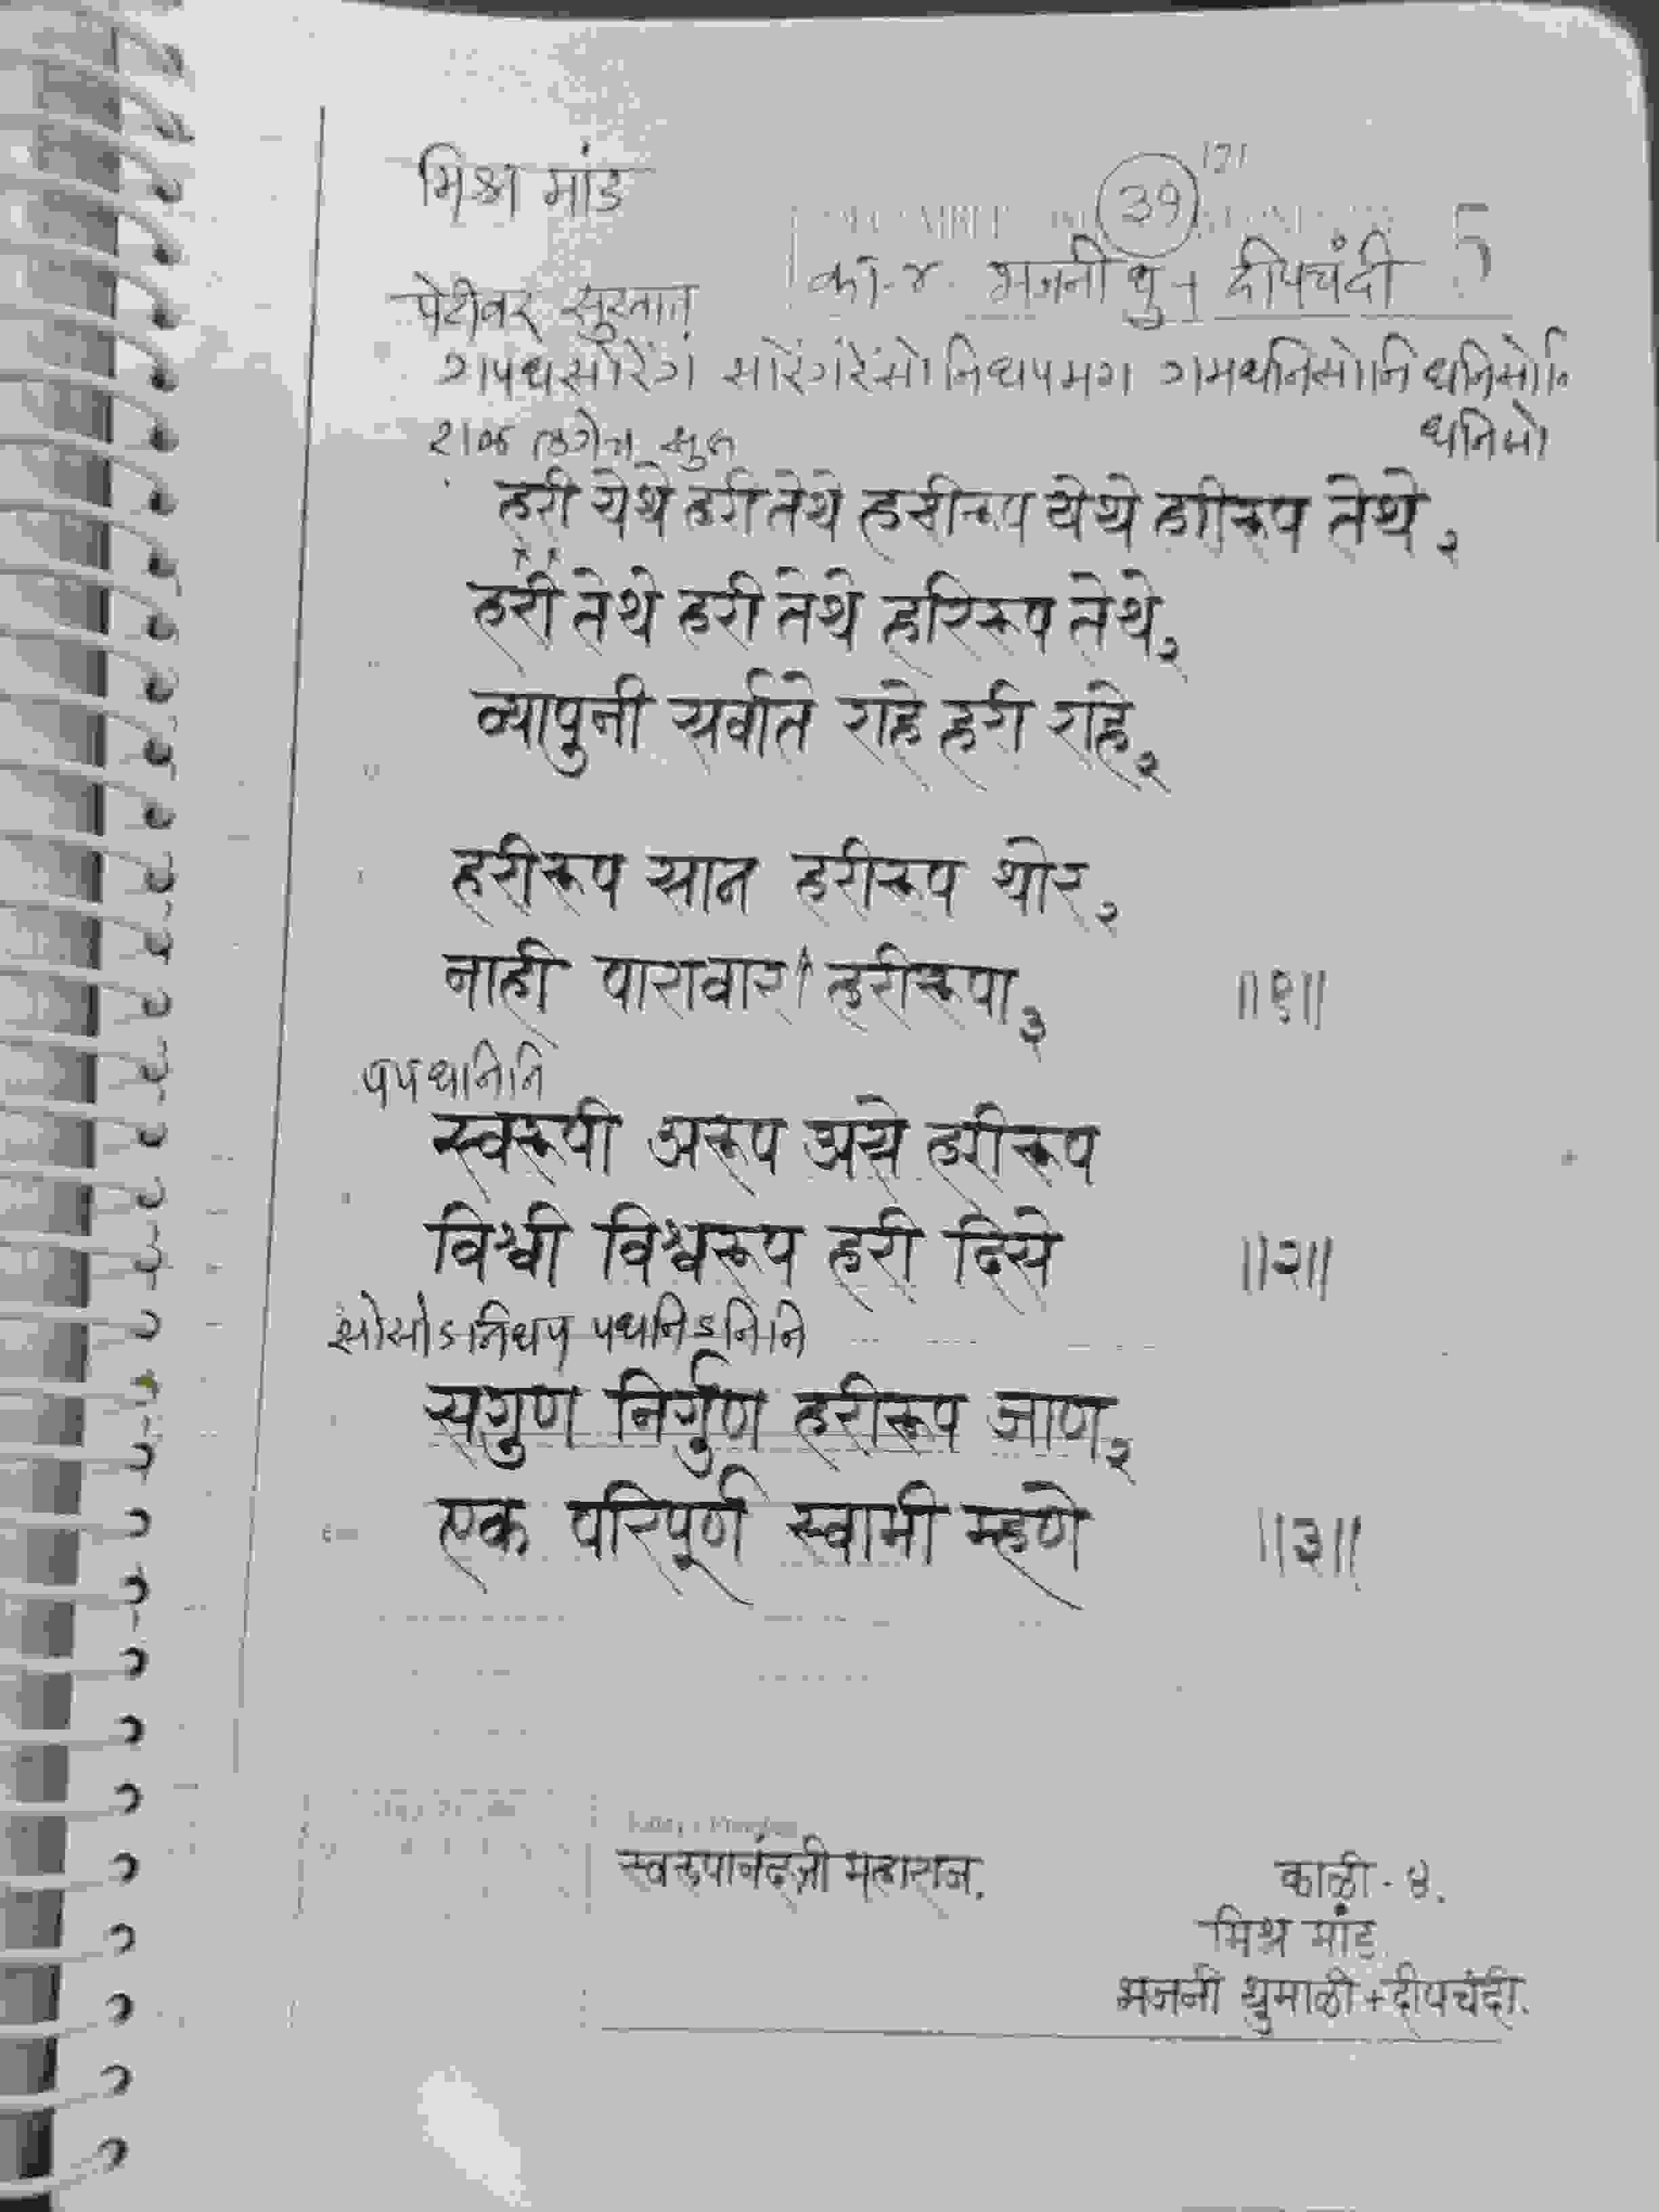 मिश्र मांड
39
का-४ भजनी धु + दीपचंदी
पेटीवर सुरवात
गपधसांरेंगं सांरेंगंरेंसां निधपमग गमधनिसांनि धनिसांनि
धनिसां
टाळ लगेच सुरु
हरी येथे हरी तेथे हरीरूप येथे हरीरूप तेथे २
हरी तेथे हरी तेथे हरिरूप तेथे २
व्यापुनी सर्वाते राहे हरी राहे २
हरीरूप सान हरीरूप थोर २
नाही पारावार हरीरूपा ३ ॥१॥
पपधनिनि
स्वरूपी अरूप असे हरीरूप
विश्वी विश्वरूप हरी दिसे ॥२॥
सांसांऽनिधप पधनिऽनिनि
सगुण निर्गुण हरीरूप जाण २
एक परिपूर्ण स्वामी म्हणे ॥३॥
स्वरुपानंदजी महाराज.
काळी - ४.
मिश्र मांड
भजनी धुमाळी + दीपचंदी.